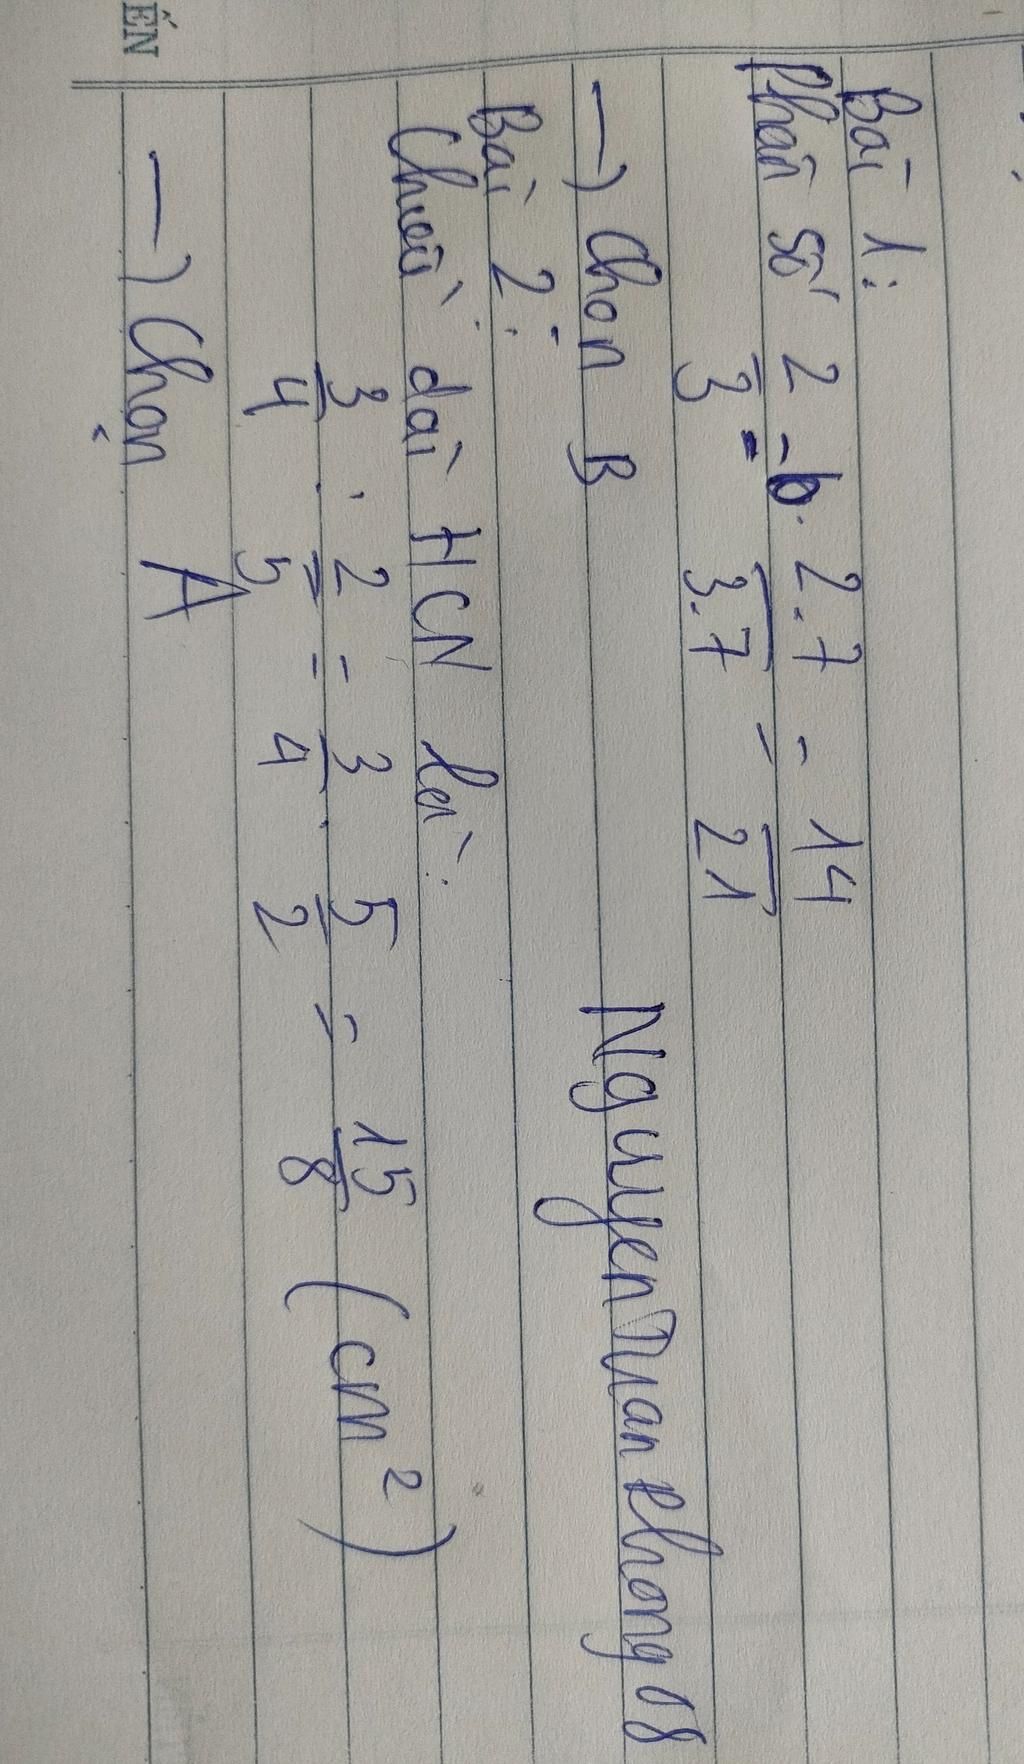 ẾN
Bài 1:
Phân số 2/3 = 2.7/3.7 = 14/21
→ Chọn B
NguyenTuanPhong08
Bài 2:
Chiều dài HCN là:
3/4 : 2/5 = 3/4 . 5/2 = 15/8 (cm²)
→ Chọn A